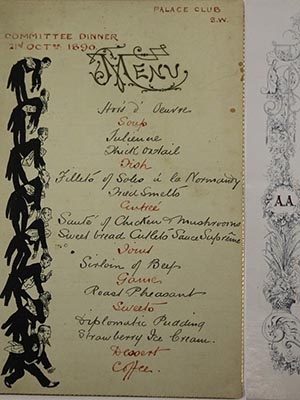 PALACE CLUB
S.W.
COMMITTEE DINNER
21st OCTr 1890.
MENU
Hors d' Oeuvre
Soup
Julienne
Thick oxtail
Fish
Fillets of Soles à la Normandy
Fried Smelts
Entrée
Sauté of Chicken & mushrooms
Sweet bread Cutlets Sauce Suprême
Joint
Sirloin of Beef
Game
Roast Pheasant
Sweets
Diplomatic Pudding
Strawberry Ice Cream.
Dessert
Coffee.
A.A.